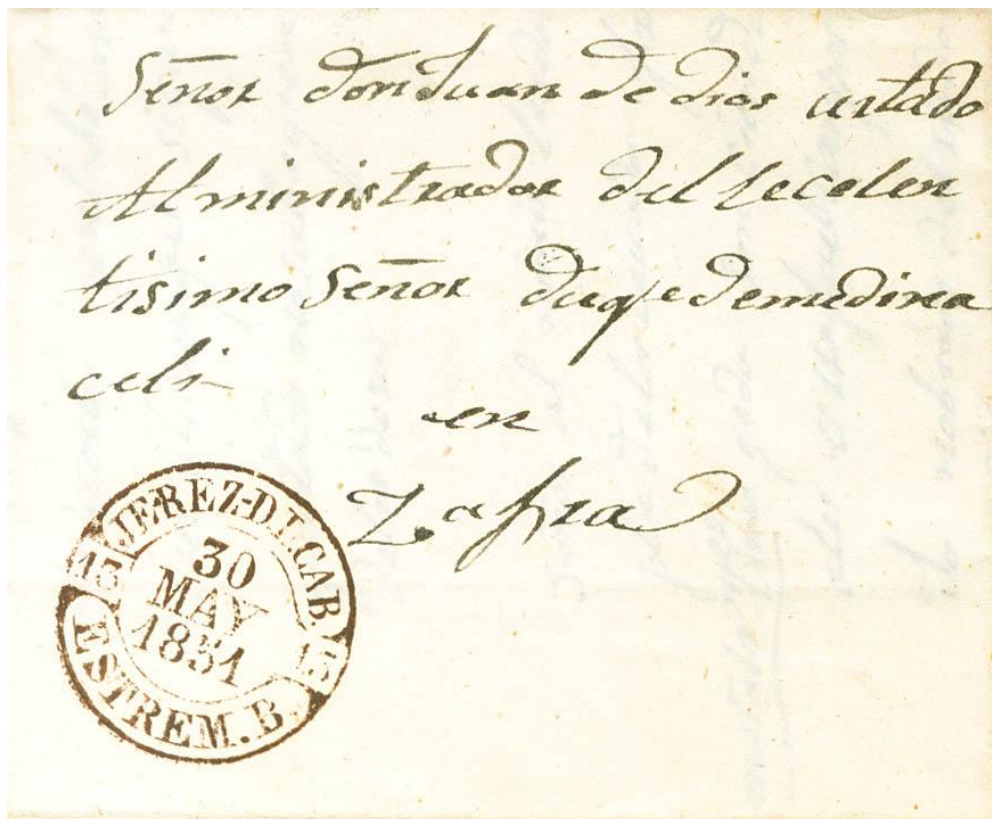 Señor don Juan de dios urtado
Alministrador del Jecelen
tisimo Señor duq,e de medina
celi
en
Zafra
JEREZ-D L.CAB
13 13
30
MAY
1851
ESTREM.B.